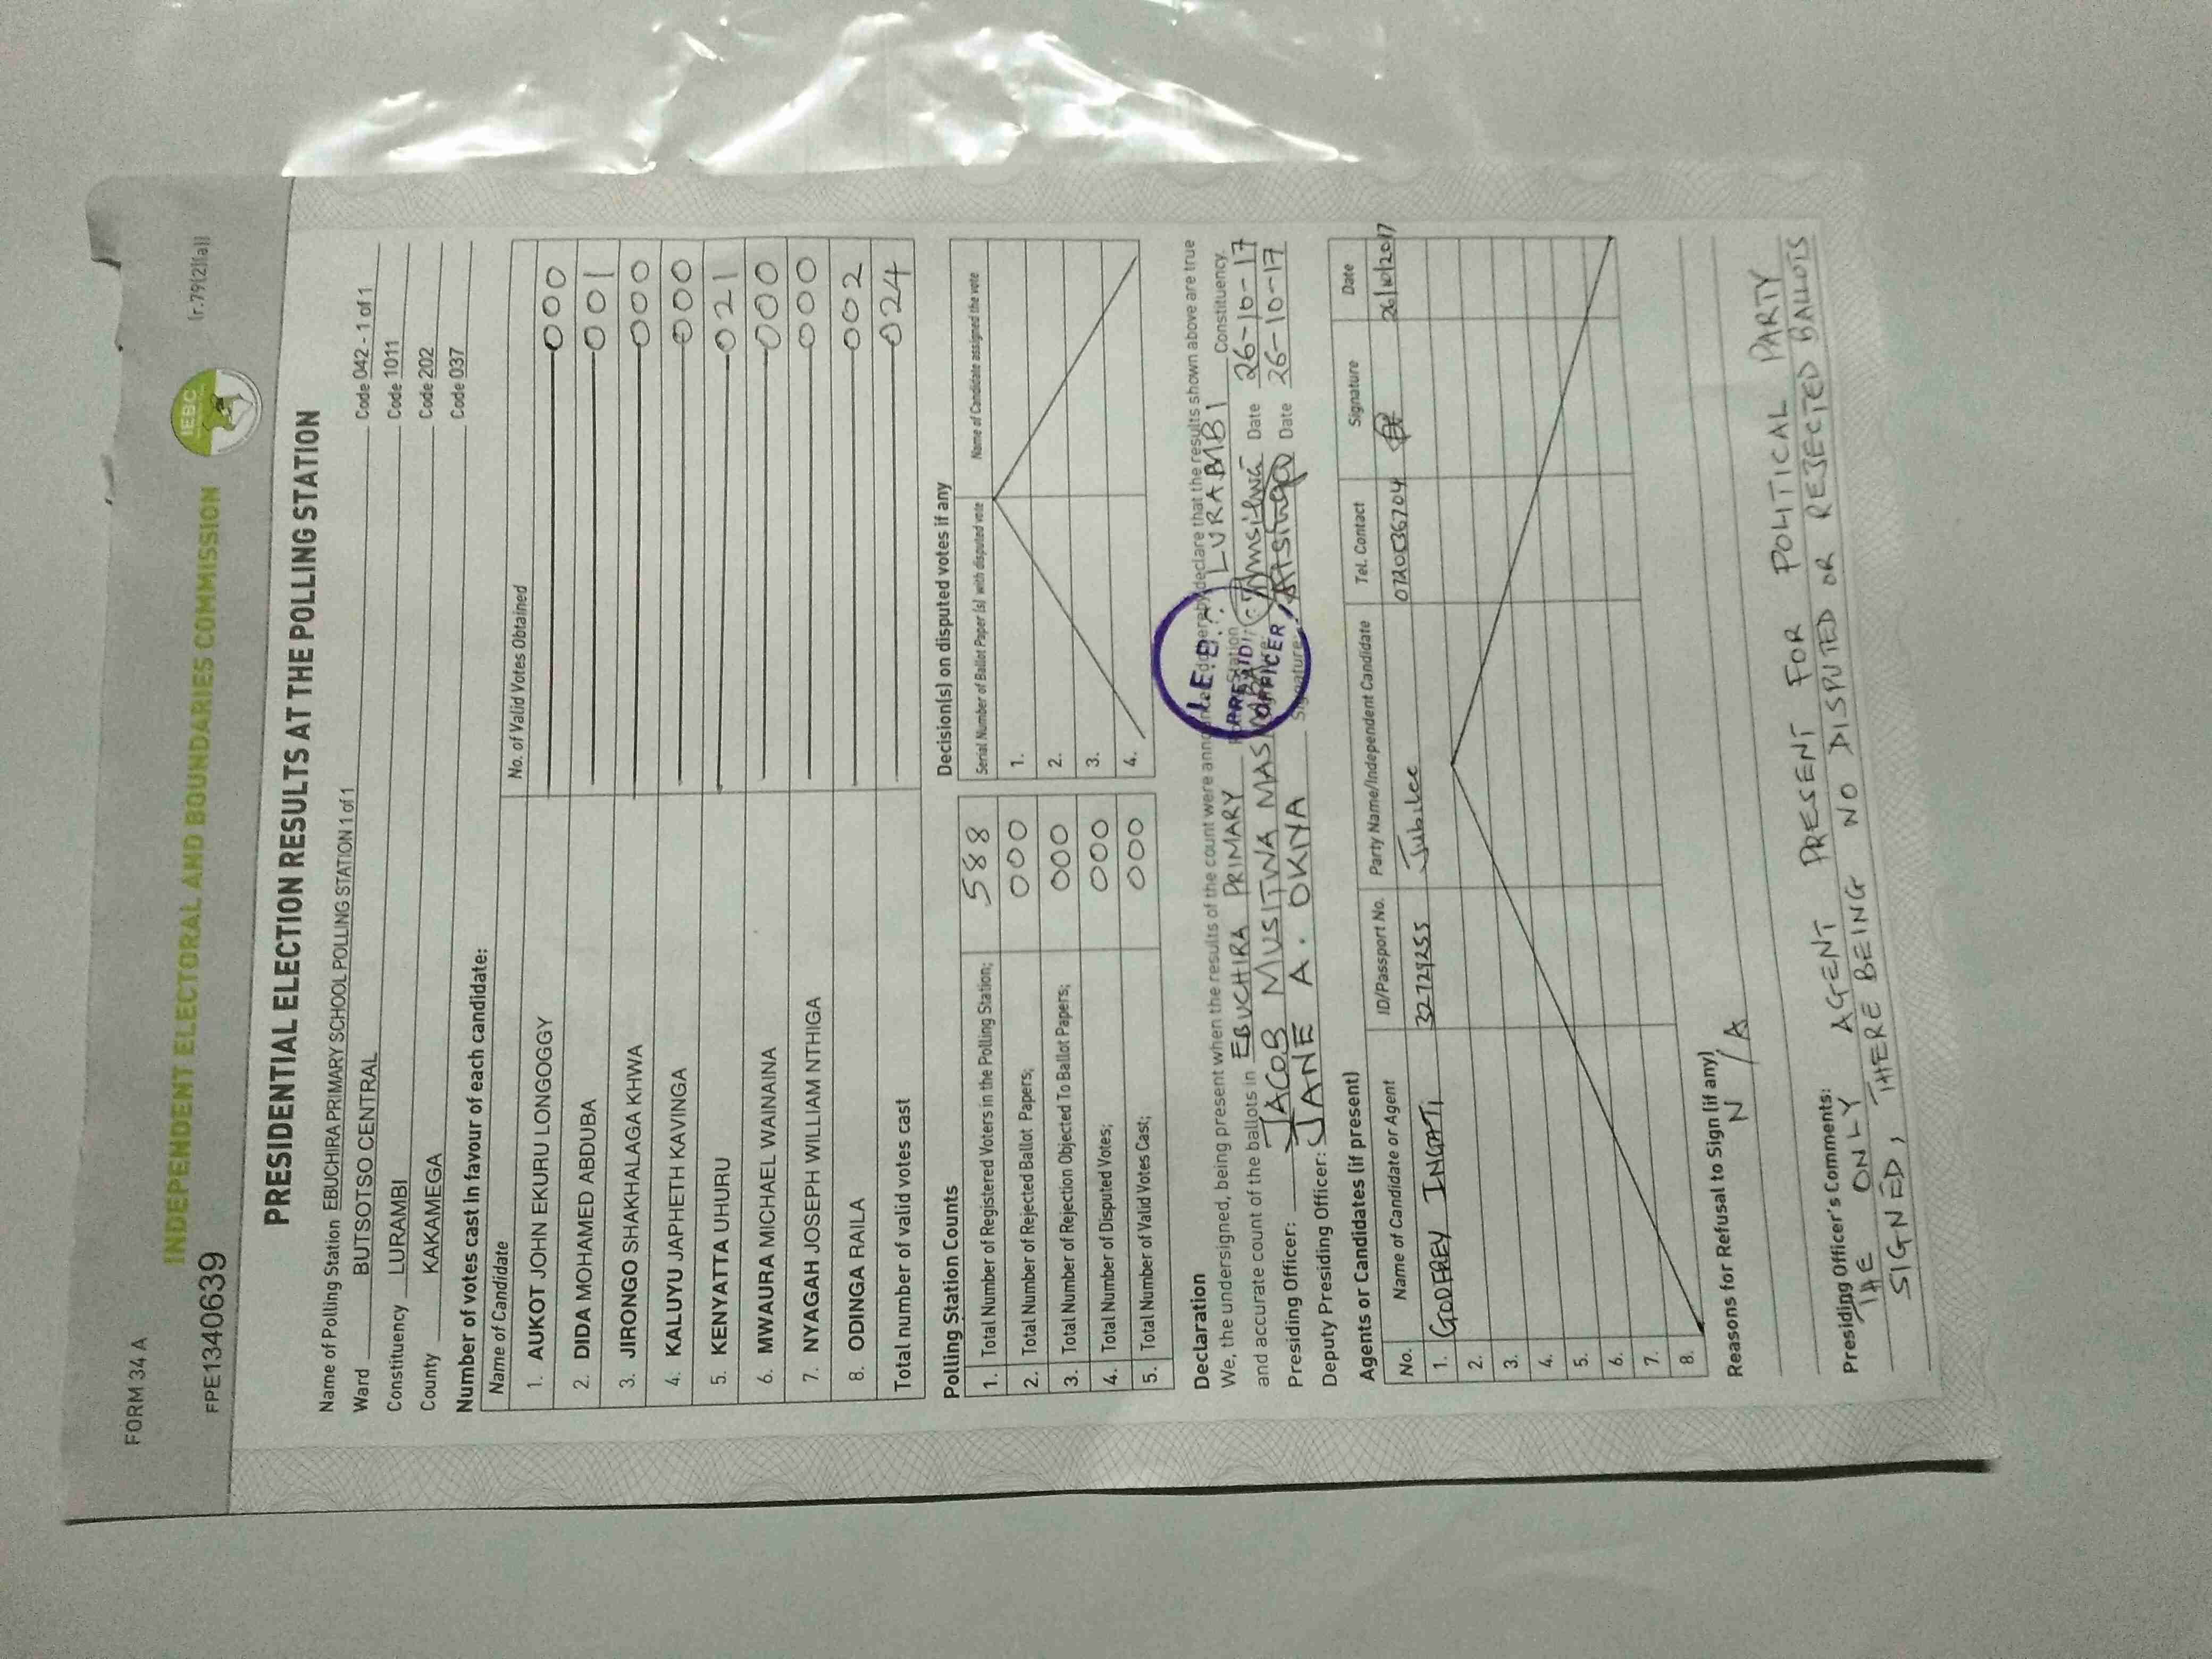 FORM 34 A
INDEPENDENT ELECTORAL AND BOUNDARIES COMMISSION
IEBC
(r.79(2)(a))
FPE1340639
PRESIDENTIAL ELECTION RESULTS AT THE POLLING STATION
Name of Polling Station EBUCHIRA PRIMARY SCHOOL POLLING STATION 1 of 1
Ward BUTSOTSO CENTRAL Code 042 - 1 of 1
Constituency LURAMBI Code 1011
County KAKAMEGA Code 202
Code 037
Number of votes cast in favour of each candidate:
Name of Candidate No. of Valid Votes Obtained
1. AUKOT JOHN EKURU LONGOGGY 000
2. DIDA MOHAMED ABDUBA 001
3. JIRONGO SHAKHALAGA KHWA 000
4. KALUYU JAPHETH KAVINGA 000
5. KENYATTA UHURU 021
6. MWAURA MICHAEL WAINAINA 000
7. NYAGAH JOSEPH WILLIAM NTHIGA 000
8. ODINGA RAILA 002
Total number of valid votes cast 024
Polling Station Counts
1. Total Number of Registered Voters in the Polling Station; 588
2. Total Number of Rejected Ballot Papers; 000
3. Total Number of Rejection Objected To Ballot Papers; 000
4. Total Number of Disputed Votes; 000
5. Total Number of Valid Votes Cast; 000
Decision(s) on disputed votes if any
Serial Number of Ballot Paper (s) with disputed vote Name of Candidate assigned the vote
1.
2.
3.
4.
Declaration
We, the undersigned, being present when the results of the count were announced, do hereby declare that the results shown above are true
and accurate count of the ballots in EBUCHIRA PRIMARY Polling Station LURAMBI Constituency.
Presiding Officer: JACOB MUSITWA Date 26-10-17
Deputy Presiding Officer: JANE A. OKIYA Signature: Date 26-10-17
PRESIDING OFFICER
Agents or Candidates (if present)
No. Name of Candidate or Agent ID/Passport No. Party Name/Independent Candidate Tel. Contact Signature Date
1. GODFREY INGATI 32729255 Jubilee 0720036704 26/10/2017
2.
3.
4.
5.
6.
7.
8.
Reasons for Refusal to Sign (if any)
N/A
Presiding Officer's Comments:
THE ONLY AGENT PRESENT FOR POLITICAL PARTY
SIGNED, THERE BEING NO DISPUTED OR REJECTED BALLOTS